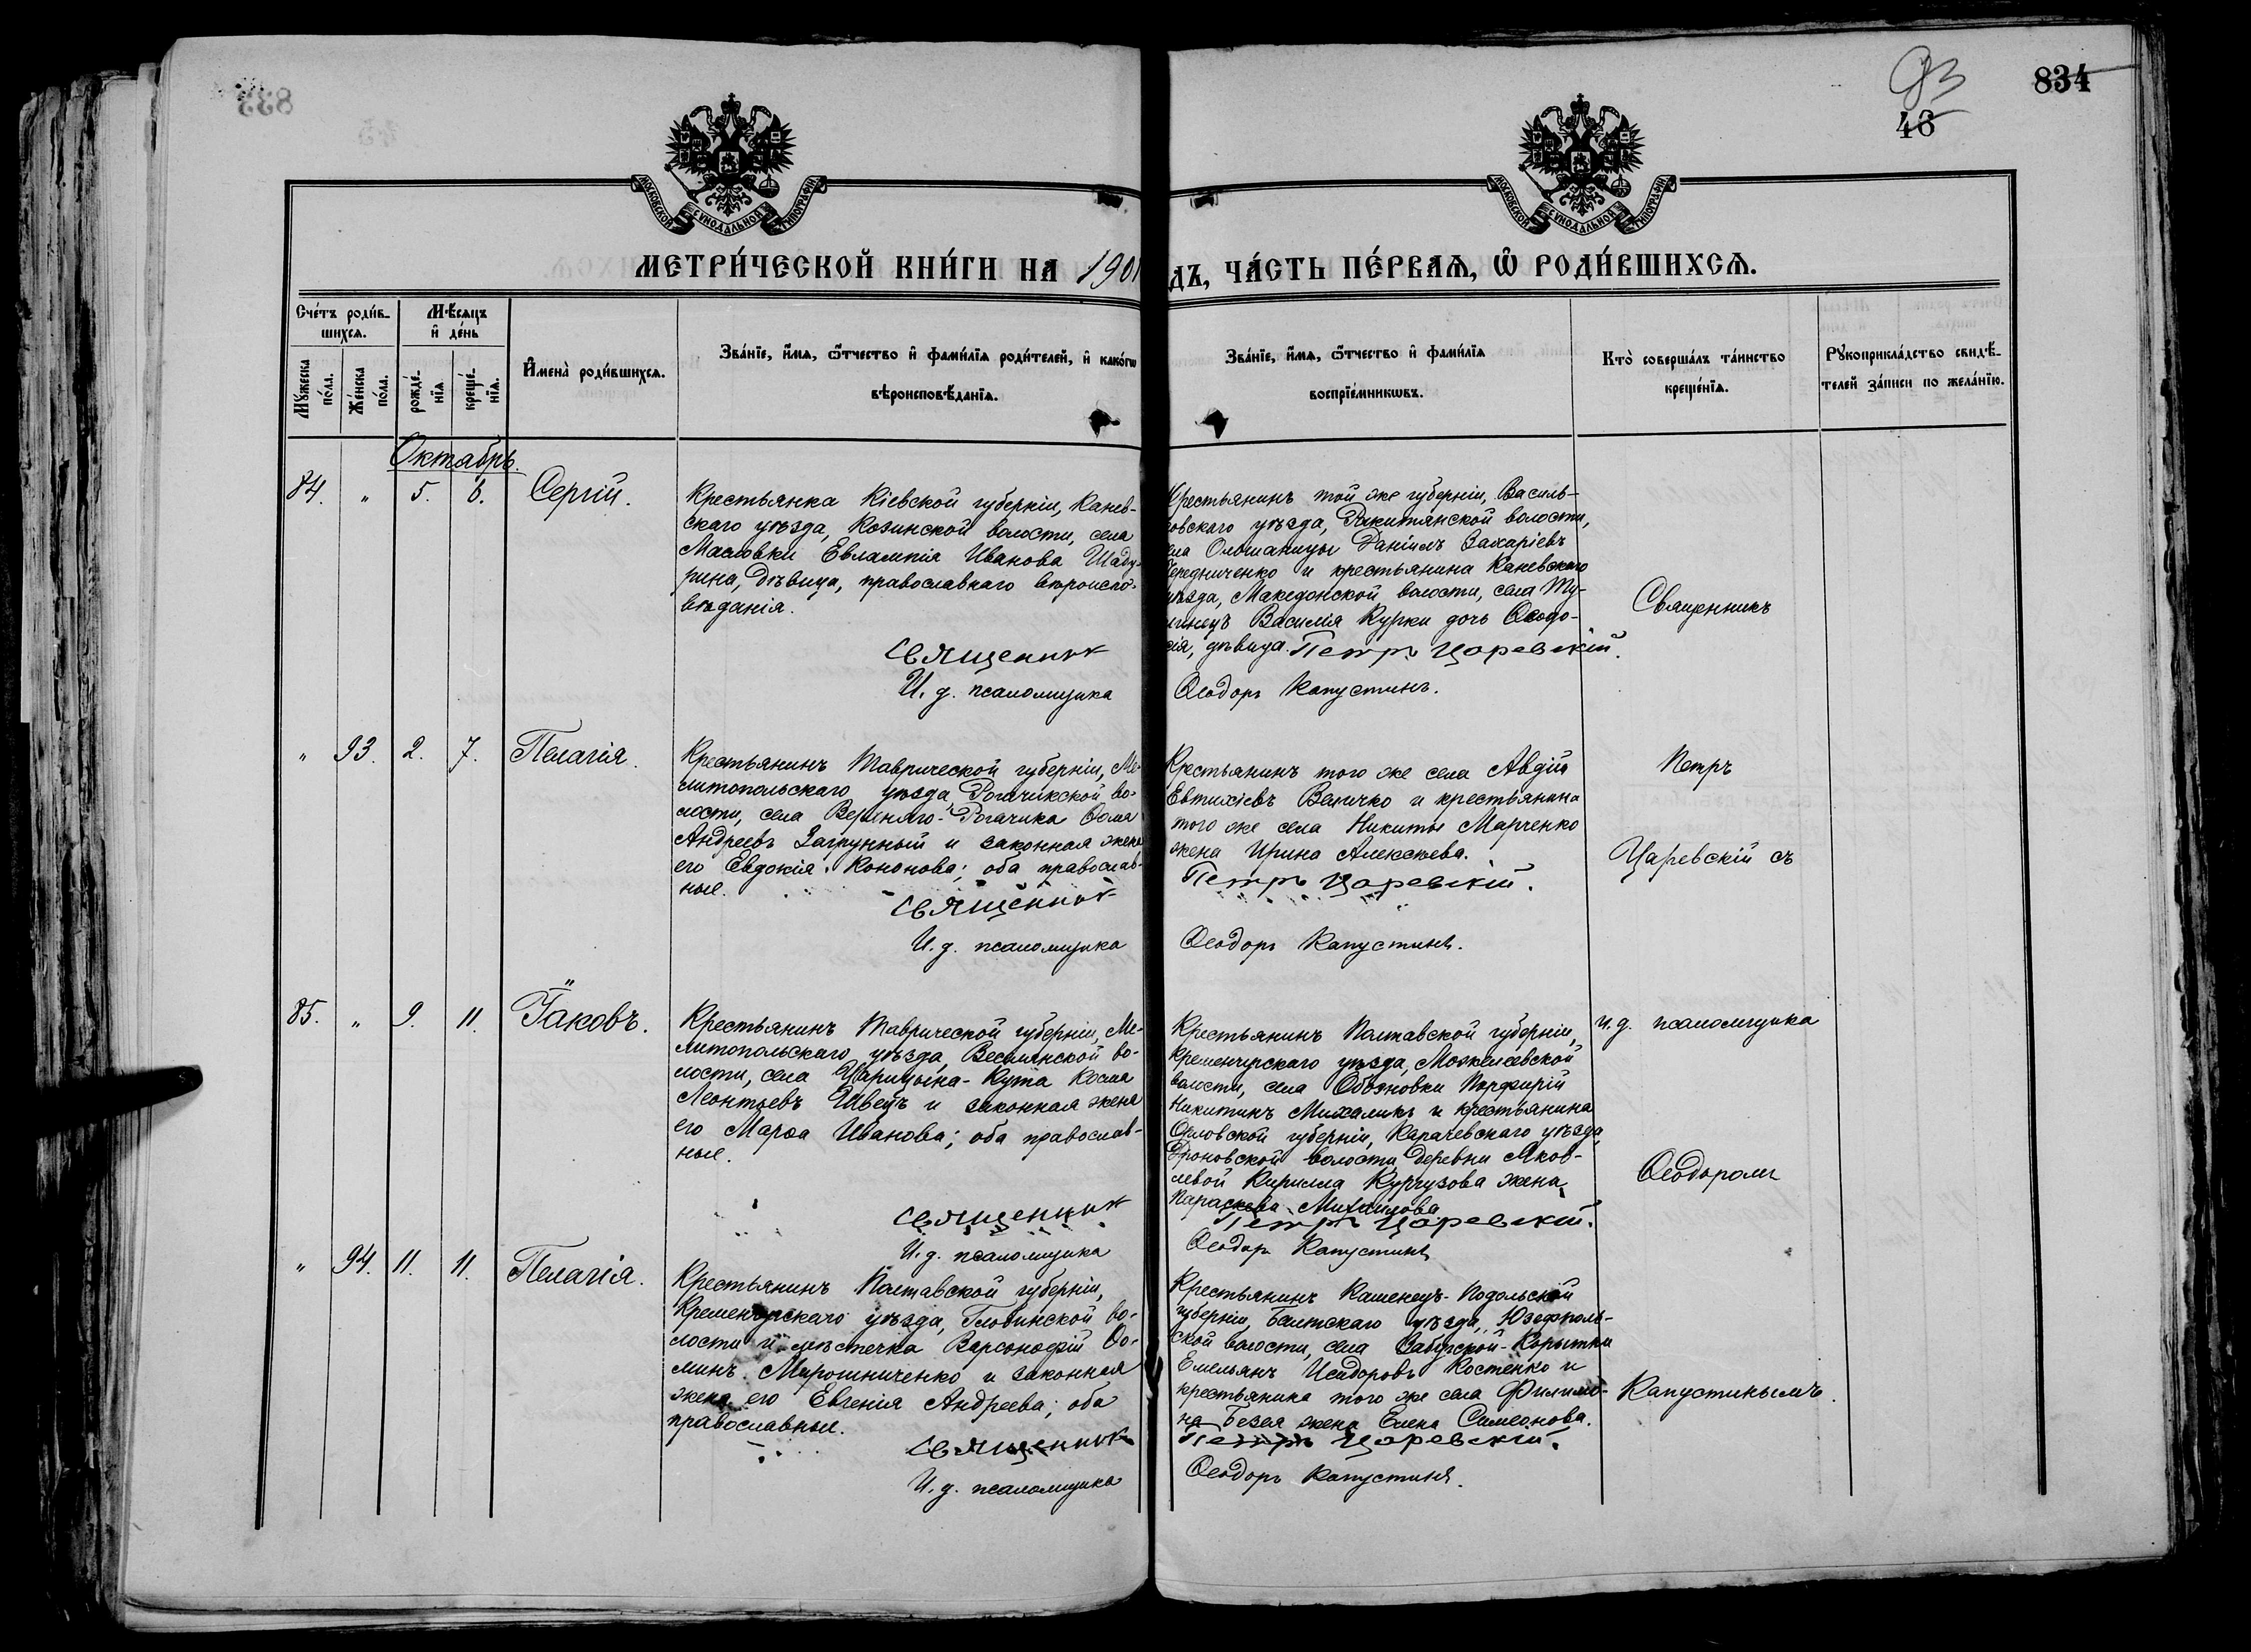 834
93
46
МОСКОВСКОЙ СѴНОДАЛЬНОЙ ТИПОГРАФІИ
МОСКОВСКОЙ СѴНОДАЛЬНОЙ ТИПОГРАФІИ
МЕТРИ́ЧЕСКОЙ КНИ́ГИ НА 1901
ДЪ, ЧА́СТЬ ПЕ́РВАѦ, Ѡ҆ РОДИ́ВШИХСѦ.
Сче́тъ роди́в-
шихсѧ.
Мѣ́сяцъ
и҆ де́нь
Мꙋ́жеска
по́ла.
Же́нска
по́ла.
рожде́-
нїѧ
креще́-
нїѧ.
И҆мена̀ роди́вшихсѧ.
Зва́нїе, и҆́мѧ, ѻ҆́тчество и҆ фами́лїѧ роди́телей, и҆ како́гѡ
вѣроисповѣ́данїѧ.
Зва́нїе, и҆́мѧ, ѻ҆́тчество и҆ фами́лїѧ
воспрїе́мникѡвъ.
Кто̀ соверша́лъ та́инство
креще́нїѧ.
Рꙋкоприкла́дство свидѣ́-
телей за́писи по жела́нїю.
Октябрь.
84. " 5. 6. Сергій.
Крестьянка Кіевской губерніи, Канев-
скаго уѣзда, Козинской волости, села
Масловки Евлампія Иванова Шаду-
рина, дѣвица, православнаго вѣроиспо-
вѣданія.
Священник
И. д. псаломщика
Крестьянинъ той же губерніи, Василь-
ковскаго уѣзда, Ракитянской волости,
села Ольшаницы Даніилъ Захаріевъ
Чередниченко и крестьянина Каневскаго
уѣзда, Македонской волости, села Ту-
линецъ Василія Курки дочь Ѳеодо-
сія, дѣвица. Петръ Царевскій.
Ѳеодоръ Капустинъ.
Священникъ
" 93. 2. 7. Пелагія.
Крестьянинъ Таврической губерніи, Ме-
литопольскаго уѣзда Рогачикской во-
лости, села Верхняго-Рогачика Ѳома
Андреевъ Загрунный и законная жена
его Евдокія Кононова; оба православ-
ные.
Священник
И. д. псаломщика
Крестьянинъ того же села Авдій
Евтихіевъ Величко и крестьянина
того же села Никиты Марченко
жена Ирина Алексѣева.
Петръ Царевскій.
Ѳеодоръ Капустинъ.
Петръ
Царевскій съ
85. " 9. 11. Іаковъ.
Крестьянинъ Таврической губерніи, Ме-
литопольскаго уѣзда, Веселянской во-
лости, села Царицына-Кута Косма
Леонтьевъ Швецъ и законная жена
его Марѳа Иванова; оба православ-
ные.
Священник
И. д. псаломщика
Крестьянинъ Полтавской губерніи,
Кременчугскаго уѣзда, Можелевской
волости, села Обозновки Порфирій
Никитинъ Михаликъ и крестьянина
Орловской губерніи, Карачевскаго уѣзда,
Дроновской волости деревни Яков-
левой Кирилла Кургузова жена
Параскева Михайлова
Петръ Царевскій.
Ѳеодоръ Капустинъ
и. д. псаломщика
Ѳеодоромъ
" 94. 11. 11. Пелагія.
Крестьянинъ Полтавской губерніи,
Кременчугскаго уѣзда, Глобинской во-
лости и мѣстечка Варсонофій Ѳо-
минъ Мирошниченко и законная
жена его Евгенія Андреева; оба
православные.
Священник
И. д. псаломщика
Крестьянинъ Каменецъ-Подольской
губерніи, Балтскаго уѣзда, Юзефполь-
ской волости, села Забугской-Корытни
Емельянъ Исидоровъ Костенко и
крестьянина того же села Филимо-
на Безея жена Елена Симеонова.
Петръ Царевскій.
Ѳеодоръ Капустинъ.
Капустинымъ.